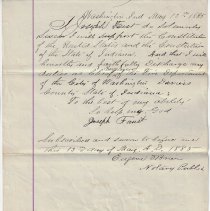 Washington Ind May 13th 1885
I Joseph Faust do Solemnly
Swear I will support the Constitution
of the United States and the Constitution
of the State of Indiana. And that I will
honestly and faithfully discharge my
duties as Chief of the Fire Department
of the City of Washington Daviess
County State of Indiana;
To the best of my ability
So help me God
Joseph Faust
Subscribed and sworn to before me
this 13 day of May A.D. 1885
Eugene
Notary Public